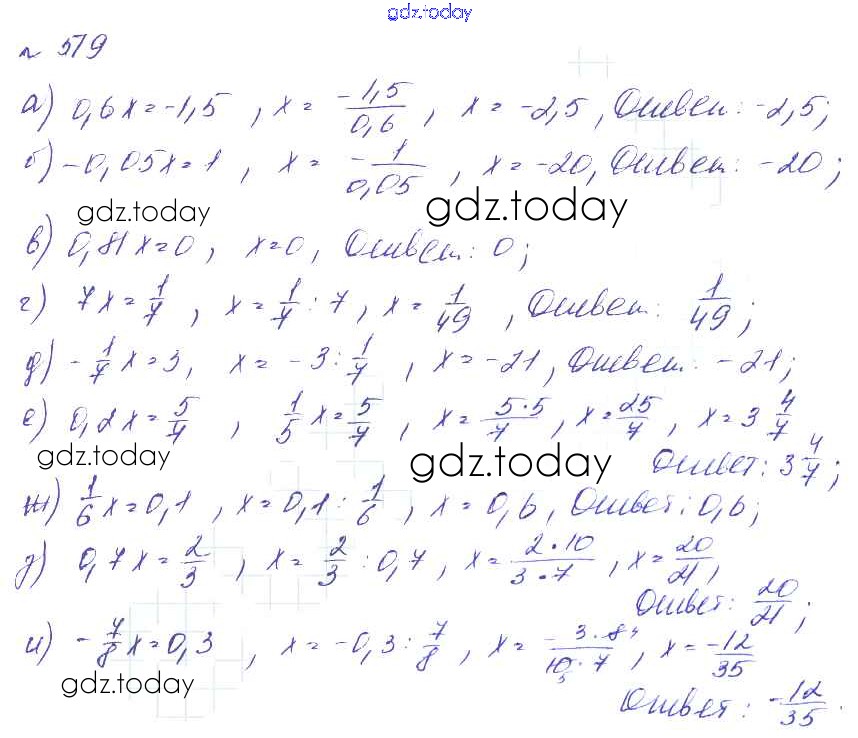 gdz.today
№ 579
а) 0,6x = -1,5 , x = -1,5/0,6 , x = -2,5, Ответ: -2,5;
б) -0,05x = 1 , x = -1/0,05 , x = -20, Ответ: -20;
gdz.today gdz.today
в) 0,81x = 0 , x = 0, Ответ: 0;
г) 7x = 1/7 , x = 1/7 : 7, x = 1/49 , Ответ: 1/49;
д) -1/7 x = 3, x = -3 : 1/7 , x = -21, Ответ: -21;
е) 0,2x = 5/7 , 1/5 x = 5/7 , x = 5·5/7 , x = 25/7 , x = 3 4/7
gdz.today gdz.today Ответ: 3 4/7;
ж) 1/6 x = 0,1 , x = 0,1 : 1/6 , x = 0,6, Ответ: 0,6;
з) 0,7x = 2/3 , x = 2/3 : 0,7, x = 2·10/3·7 , x = 20/21,
Ответ: 20/21;
и) -7/8 x = 0,3 , x = -0,3 : 7/8 , x = -3·8⁴/10₅·7 , x = -12/35
gdz.today
Ответ: -12/35.